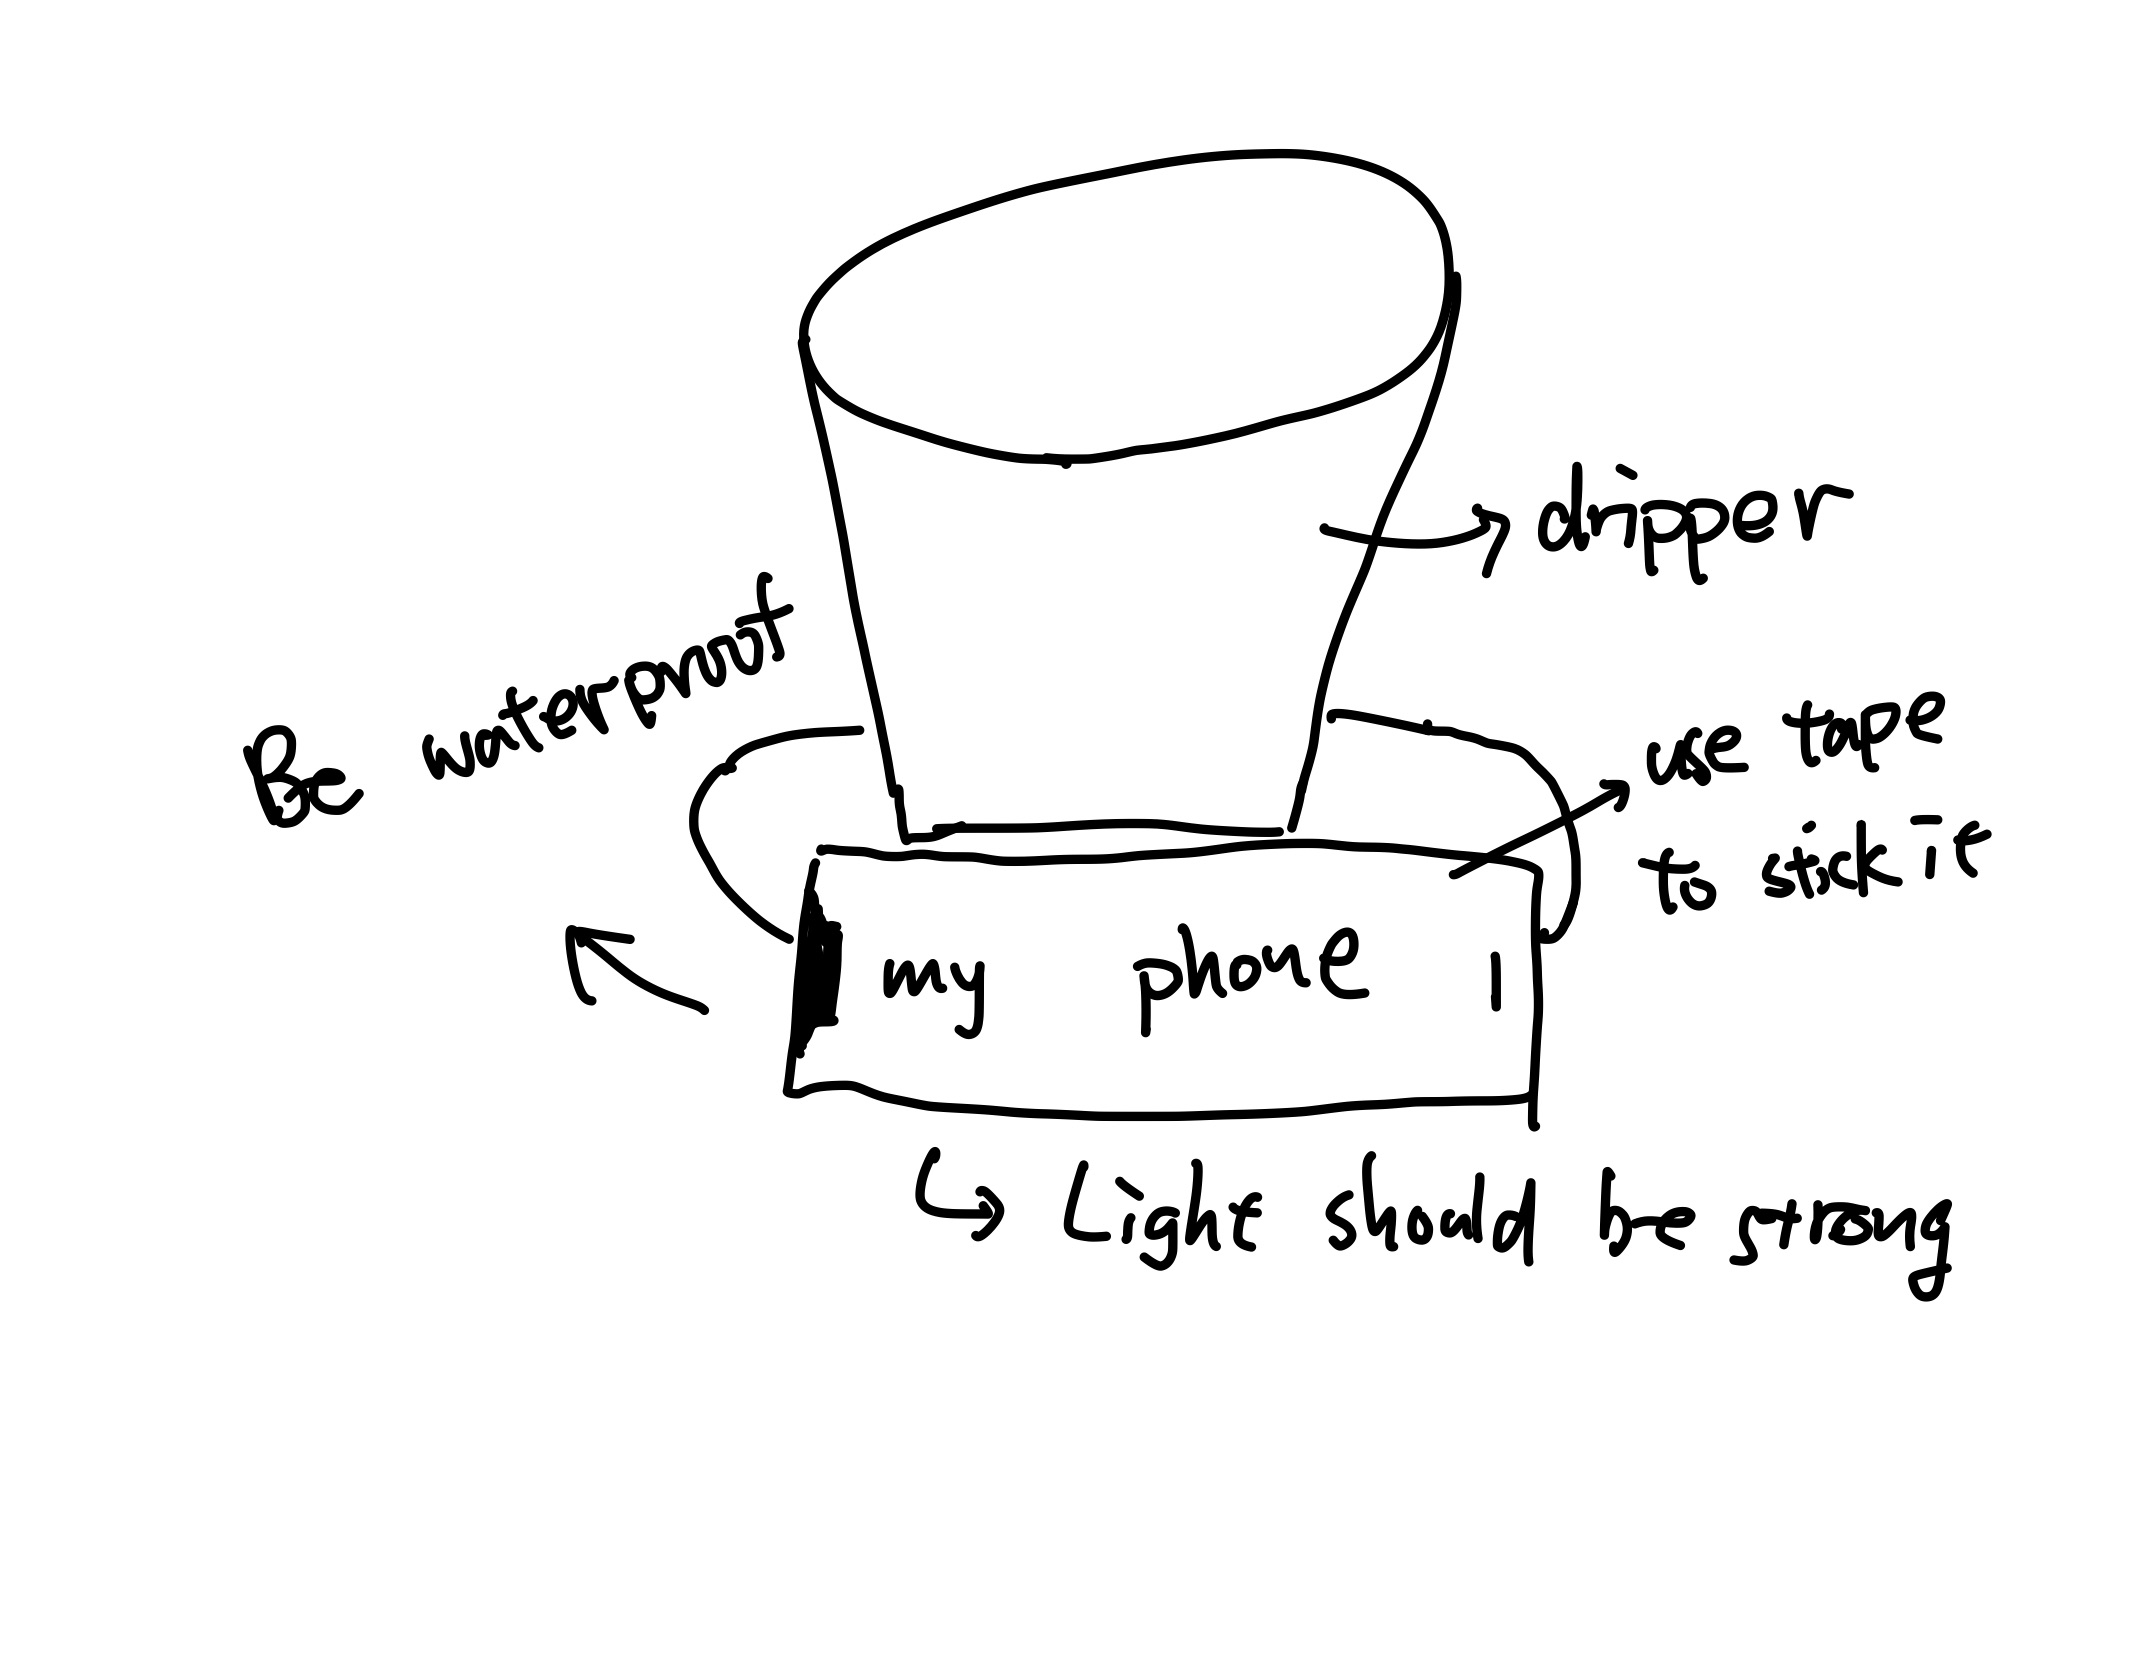 dripper
Be waterproof
use tape
to stick it
my phone
Light should be strong